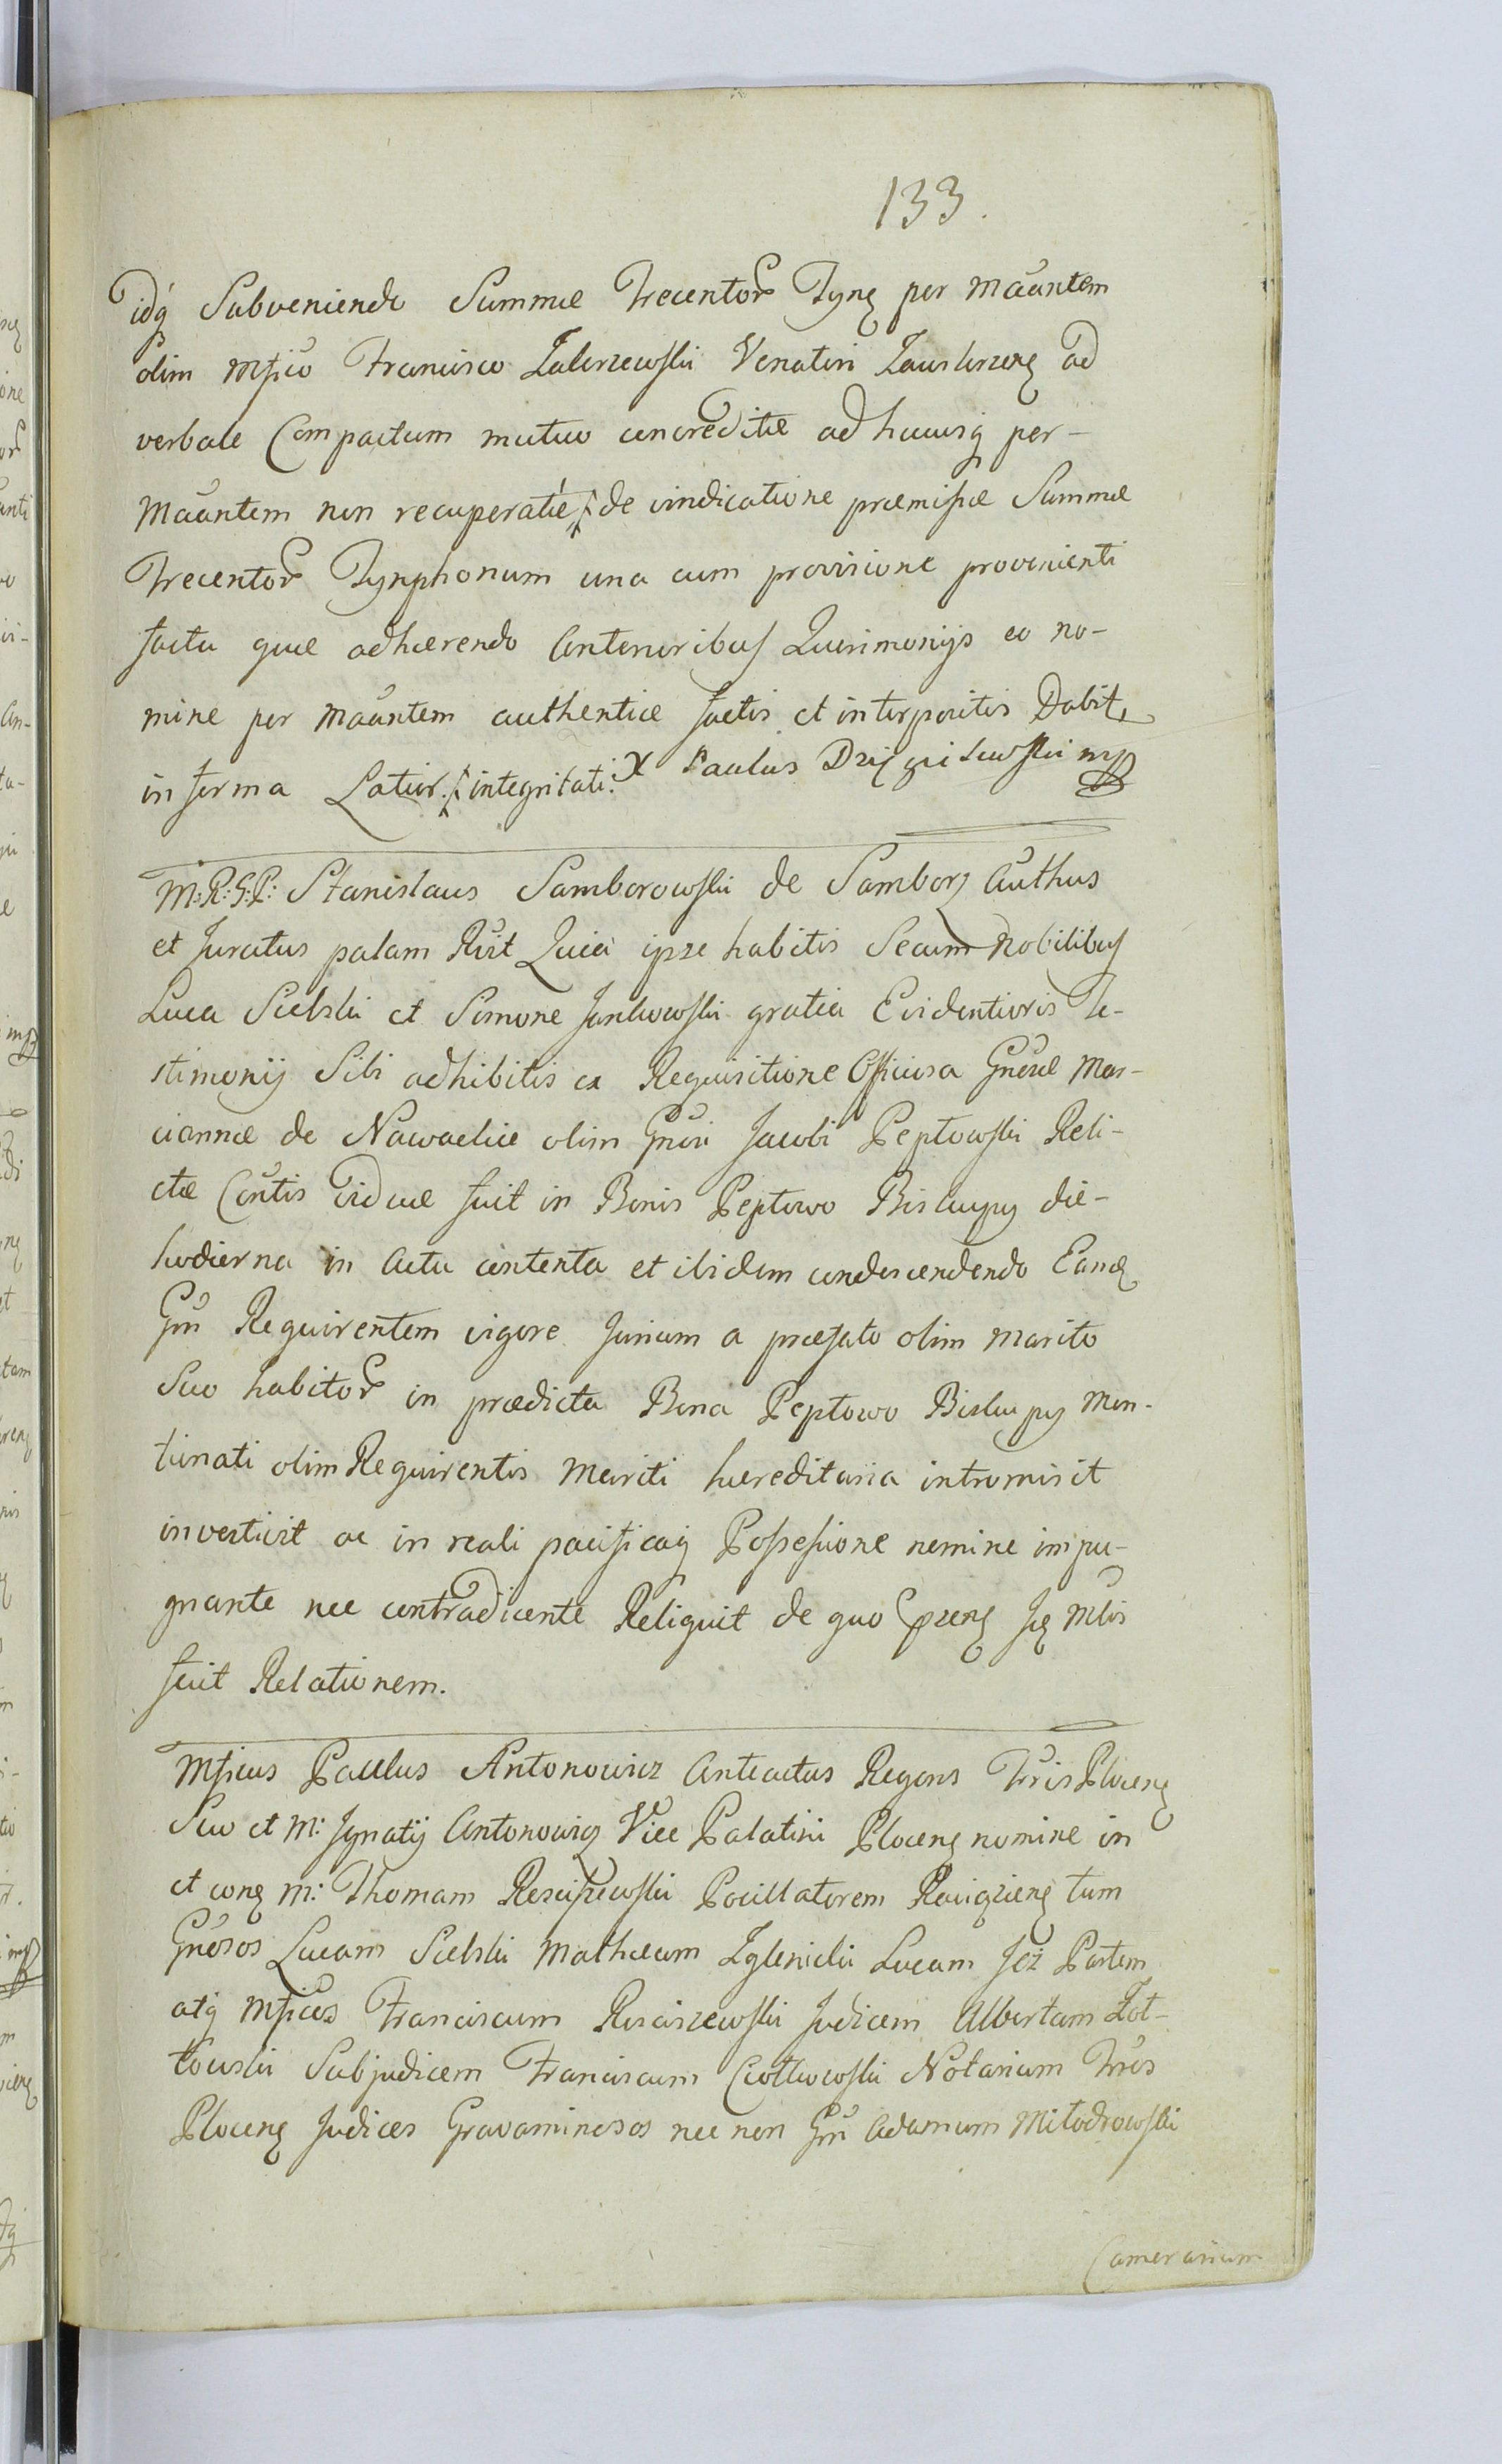 133.
idq Subveniendo Summæ Trecentor Tynę per Mãantem
olim Mficо Francisco Zaborzewski Venatori Zauskrzenę ad
verbale Compactum mutuo concreditæ ad hucusq per-
Mãantem non recuperatæ de vindicatione præmissæ Summæ
Trecentor Tynphonum una cum provisione provenienti
facta quæ adhærendo Anterioribus Querimonijs eo no-
mine per Mãantem authentice factis et interpositis Dabit,
in forma Latior. integritati. X Paulus mp
M: R: G: P: Stanislaus Samborowski de Samborz Authus
et Juratus palam Rvit Quia ipse habitis Secum Nobilibus
Luca Sielski et Simone Jankowski gratia Evidentioris Te-
stimonij Sibi adhibitis ex Requisitione Officiosa Gnosæ Mar-
iannæ de Nawackie olim Gnosi Jacobi Peptowski Reli-
ctæ Contis viduæ fuit in Bonis Peptowo Biskupy die-
hodierna in Actu contenta et ibidem condescendendo Eandę
Gn Requirentem vigore Jurium a præfato olim Marito
Suo habitor in prædicta Bona Peptowo Biskupy Men-
tionati olim Requirentis Mariti hæreditaria intromisit
investivit ac in reali pacificaq Possessione nemine impu-
gnante nec contradicente Reliquit de quo præenę Mlis
fcit Relationem.
Mficus Paulus Antonowicz Anteactus Regens Trris Plocenę
Suo et M: Ignatij Antonowicz Vice Palatini Plocenę nomine in
et conę M: Thomam Rosciszewski Pocillatorem Raciązienę tum
Gnosos Lucam Sielski Mathæum Zglenicki Lucam Jeż Partem
atq Mficos Franciscum Rosciszewski Judicem Albertum Zot-
towski Subjudicem Franciscum Ciotkowski Notarium Trris
Plocenę Judices Gravaminosos nec non Gn Adamum Mitodrowski
Camerarium